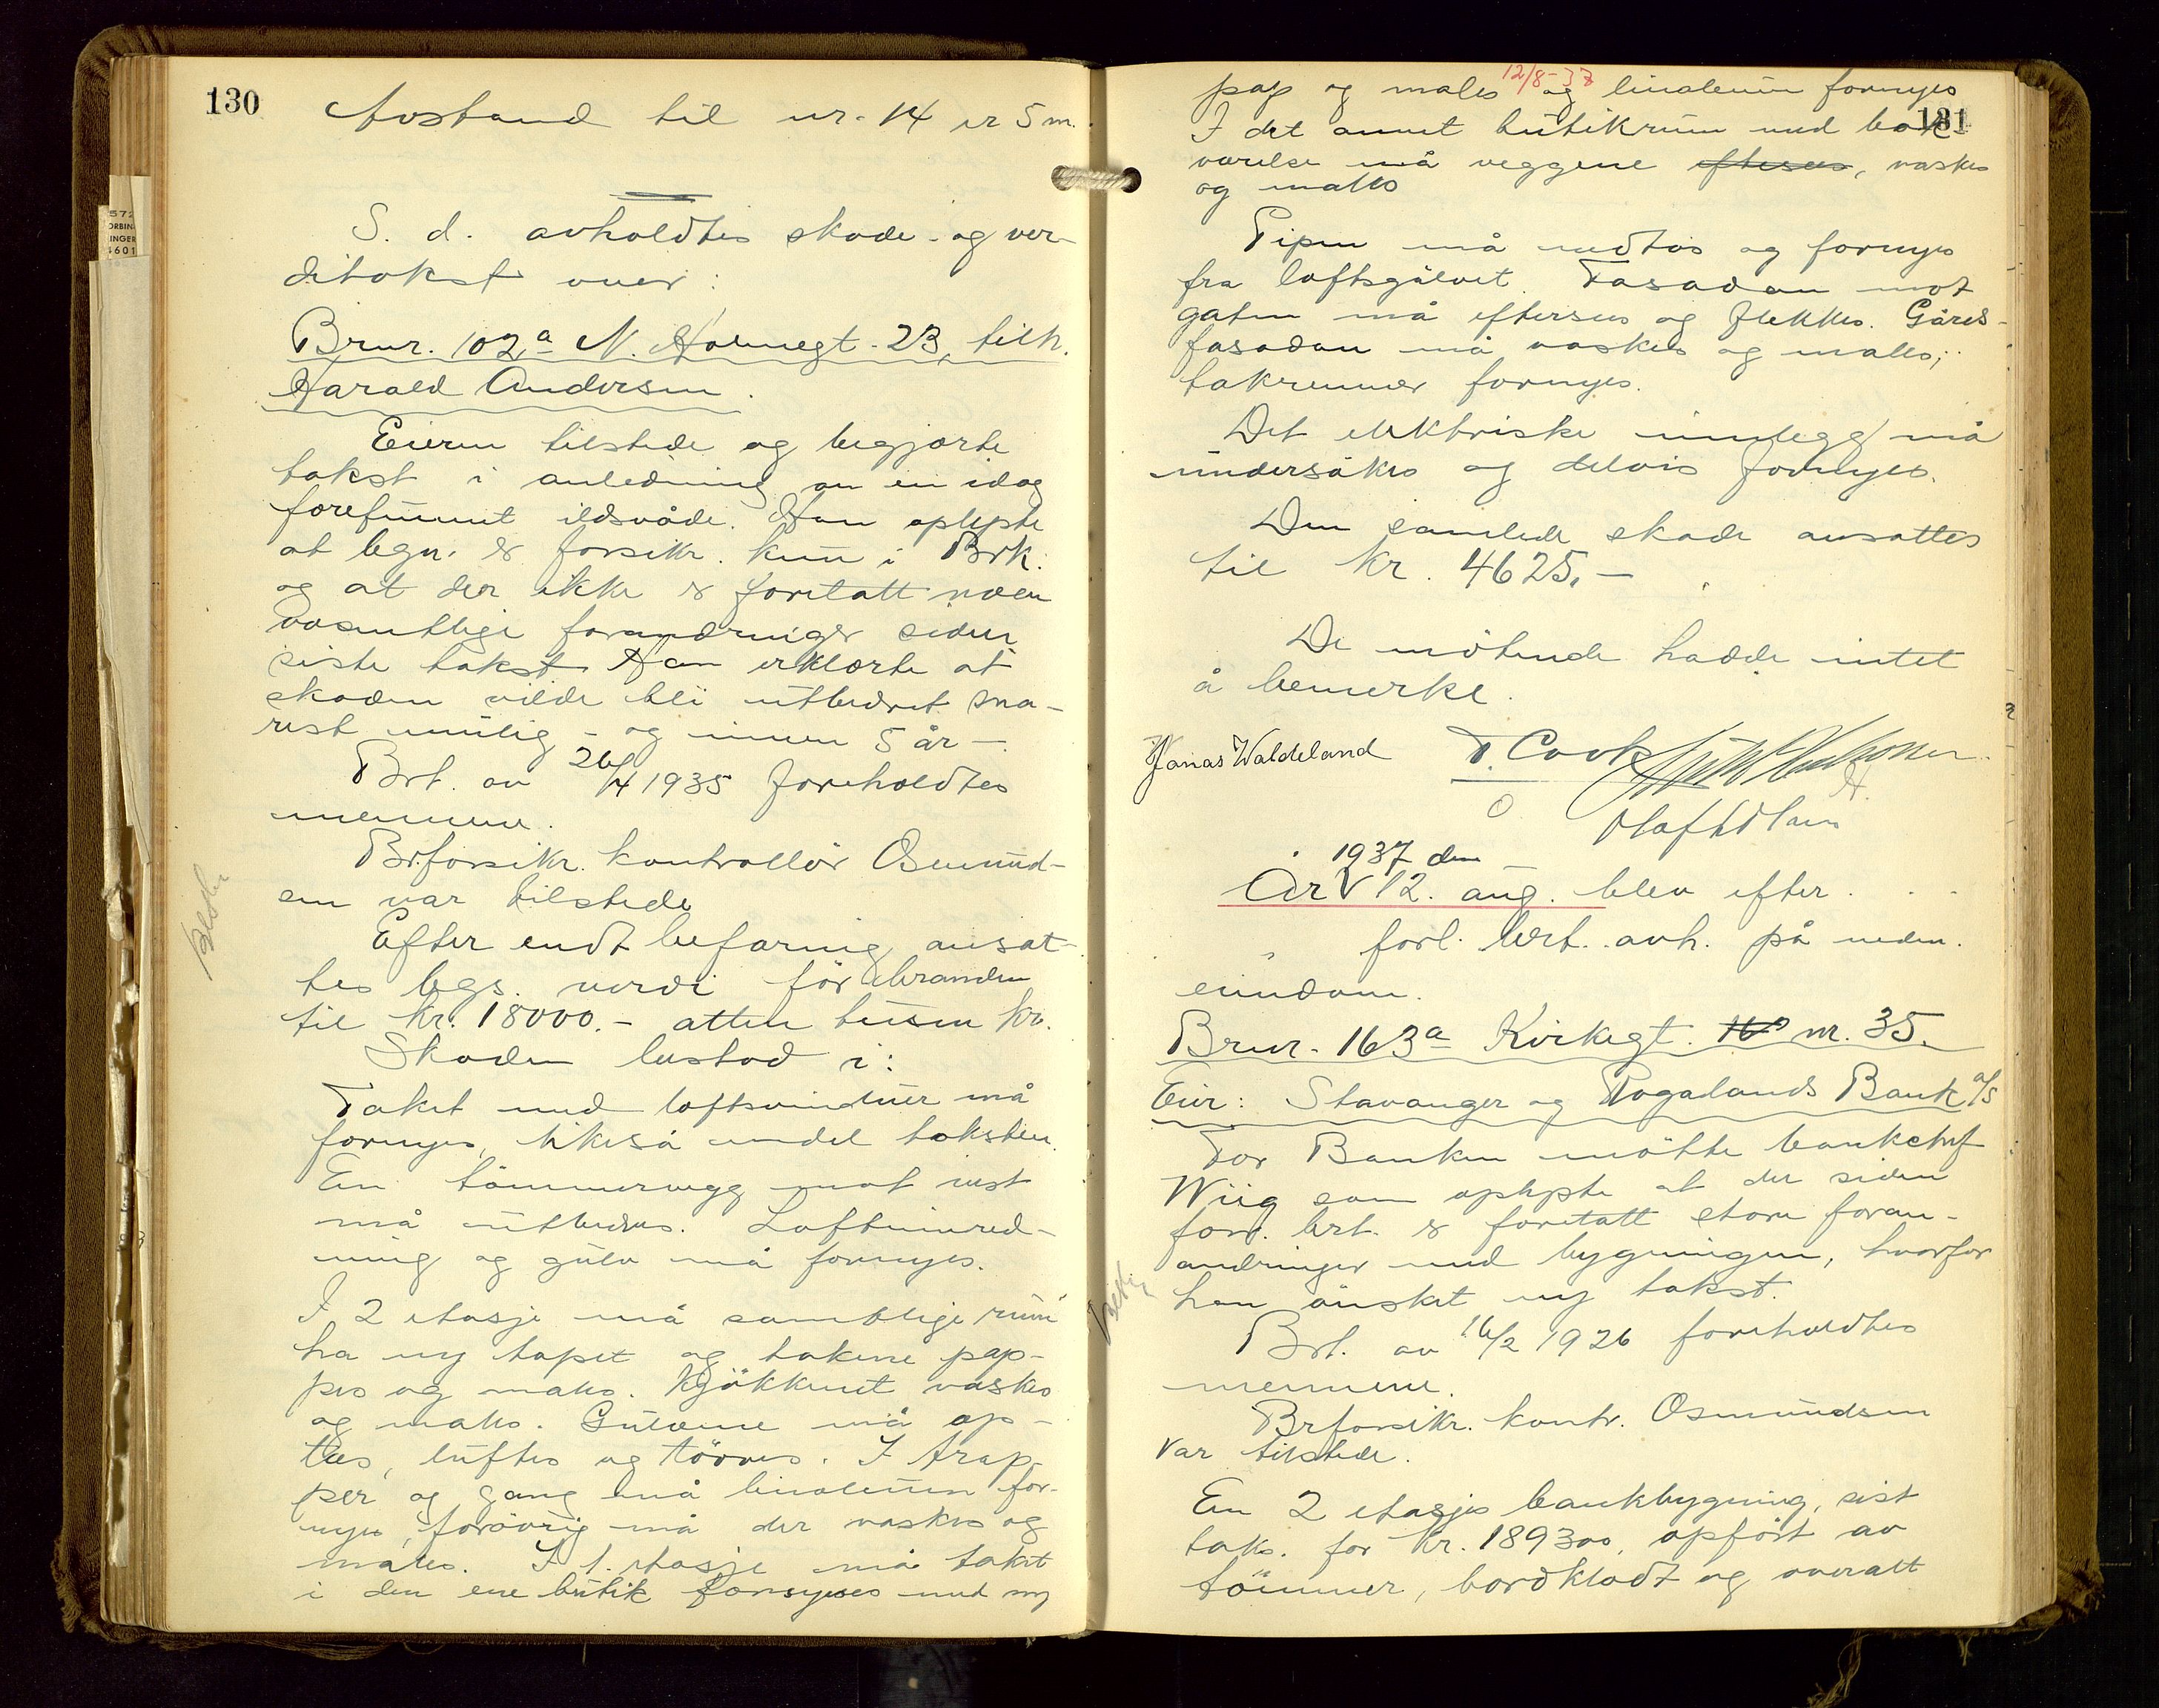 130
Avstand til nr. 14 er 5 m.
S. d. avholdtes skade- og ver-
ditakst over:
Brnr. 102a N. Holmegt. 23, tilh.
Harald Andersen.
Eieren tilstede og begjærte
takst i anledning av en idag
forefunnet ildsvåde. Han oplyste
at bygn. er forsikr. kun i Brk.
og at der ikke er foretatt noen
vesentlige forandringer siden
siste takst. Han erklærte at
skaden vilde bli utbedret sna-
rest mulig - og innen 5 år -.
Brt. av 26/4 1935 foreholdtes
mennene.
Br.forsikr. kontrollør Osmund-
sen var tilstede
Efter endt befaring ansat-
tes bygs. verdi før branden
til kr. 18000.- atten tusen kr.
Skaden bestod i:
Taket med loftsvinduer må
fornyes, likeså endel taksten.
En tömmervegg mot vest
må utbedres. Loftsinnred-
ning og gulv må fornyes.
I 2 etasje må samtlige rum
ha ny tapet og takene pap-
pes og males. Kjökkenet vaskes
og males. Gulvene må op-
tas, luftes og törres. I trap-
per og gang må linoleum for-
nyes, forövrig må der vaskes og
males. I 1. etasje må taket
i den ene butik fornyes med ny
131
12/8-37
pap og males og linoleum fornyes
I det annet butikrum med bak-
værelse må veggene eftersees, vaskes
og males
Pipen må nedtas og fornyes
fra loftsgulvet. Fasaden mot
gaten må eftersees og flekkes. Gårds-
fasaden må vaskes og males;
takrenner fornyes.
Det elektriske innlegg må
undersökes og delvis fornyes.
Den samlede skade ansattes
til kr. 4625.-
De mötende hadde intet
å bemerke.
Jonas Waldeland T. Cook
1937 den
År 12. aug. blev efter
forl. brt. avh. på neden.
eiendom.
Brnr. 163a Kirkegt. nr. 35.
Eier: Stavanger og Rogalands Bank a/s
For Banken mötte bankchef
Wiig som oplyste at der siden
forr. brt. er foretatt store foran-
andringer med bygningen, hvorfor
han önsket ny takst.
Brt. av 16/2 1926 foreholdtes
mennene.
Brforsikr. kontr. Osmundsen
var tilstede.
En 2 etasjes bankbygning, sist
taks. for kr. 189300, opfört av
tömmer, bordklædt og overalt